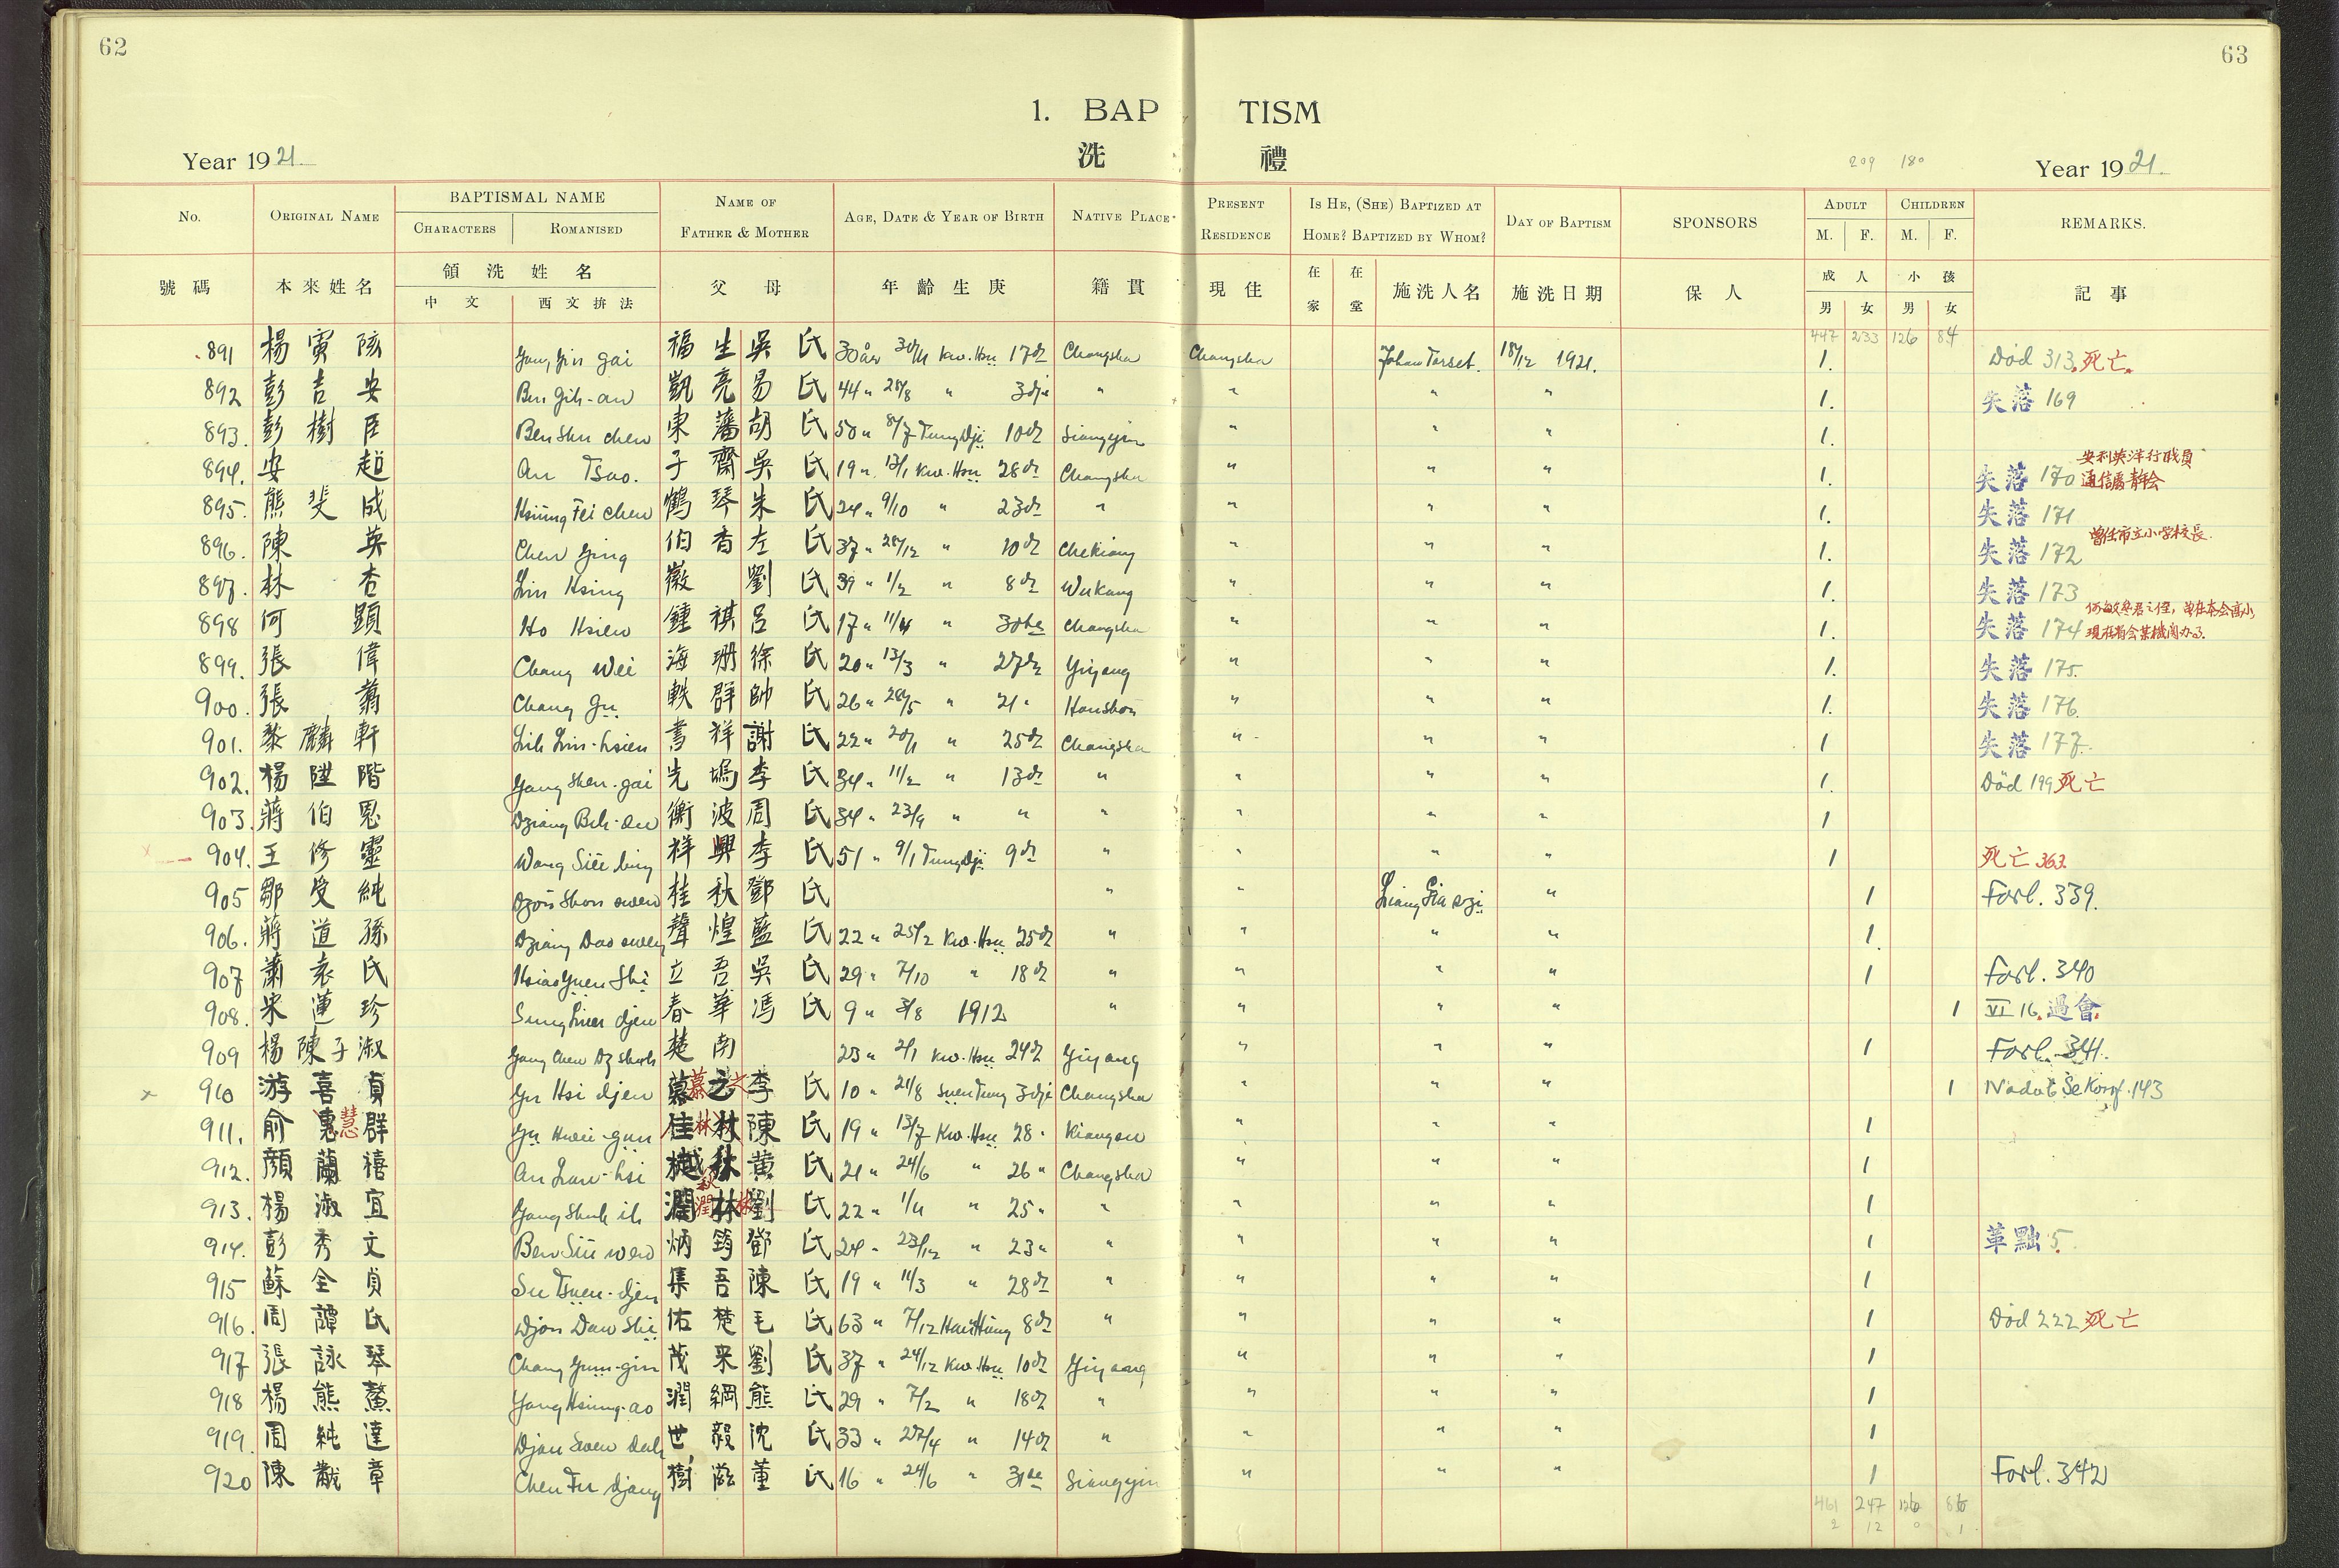 62
63
1. BAP TISM
洗 禮
Year 1921.
209 180
Year 1921.
No. ORIGINAL NAME BAPTISMAL NAME CHARACTERS ROMANISED NAME OF FATHER & MOTHER AGE, DATE & YEAR OF BIRTH NATIVE PLACE PRESENT RESIDENCE IS HE, (SHE) BAPTIZED AT HOME? BAPTIZED BY WHOM? DAY OF BAPTISM SPONSORS ADULT M. F. CHILDREN M. F. REMARKS.
號碼 本來姓名 領洗姓名 中文 西文拚法 父母 年齡生庚 籍貫 現住 在家 在堂 施洗人名 施洗日期 保人 成人 男 女 小孩 男 女 記事
447 233 126 84
891 楊寅陔 Yang Yin gai 福生 吳氏 30 år 30/11 Kw. Hsu 17 Changsha Changsha Johan Torset. 18/12 1921. 1. Död 313. 死亡.
892 彭吉安 Ben Gih-an 凱亮 易氏 44 " 28/8 " 3 " " " " 1. 失落 169
893. 彭樹臣 Ben Shu chen 東藩 胡氏 50 " 8/7 Tung Dji 10 Siangyin " " " 1.
894. 安超 An Tsao. 子齋 吳氏 19 " 13/1 Kw. Hsu 28 Changsha " " " 1. 失落 170 安利英洋行職員 通信處青年会
895. 熊斐成 Hsiung Fei chen 鶴琴 朱氏 24 " 9/10 " 23 " " " " 1. 失落 171
896. 陳英 Chen Ying 伯香 左氏 37 " 28/12 " 10 Chekiang " " " 1. 失落 172 曾任市立小学校長.
897. 林杏 Lin Hsing 徽 劉氏 39 " 1/2 " 8 Wukang " " " 1. 失落 173
898 何顯 Ho Hsien 鍾祺 呂氏 17 " 11/4 " 30 Changsha " " " 1. 失落 174
899. 張偉 Chang Wei 海珊 徐氏 20 " 13/3 " 27 Yiyang " " " 1. 失落 175.
900. 張翥 Chang Gu 軼群 帥氏 26 " 28/5 " 21 " Hanshou " " " 1. 失落 176.
901. 黎麟軒 Lih Lin-hsien 書祥 謝氏 22 " 20/1 " 25 Changsha " " " 1 失落 177.
902. 楊陞階 Yang Shen-gai 先塢 李氏 34 " 11/2 " 13 " " " " 1. Död 199 死亡
903. 蔣伯恩 Dziang Beh-en 衡波 周氏 34 " 23/9 " " " " " " 1
904. 王修靈 Wang Siu ling 祥興 李氏 51 " 9/1 Tung Dji 9 " " " " 1 死亡 363.
905 鄒受純 Dzou Shou swen 桂秋 鄧氏 " " Liang Gia dzi " 1 Forl. 339.
906. 蔣道孫 Dziang Dao swen 聲煌 藍氏 22 " 25/2 Kw. Hsu 25 " " " " 1.
907 蕭袁氏 Hsiao Yuen Shi 立吾 吳氏 29 " 7/10 " 18 " " " " 1 Forl. 340
908. 宋蓮珍 Sung Lien djen 春華 馮氏 9 " 3/8 1912 " " " " 1 VI 16. 過會.
909 楊陳子淑 Yang Chen Dz shuh 楚南 23 " 2/1 Kw. Hsu 24 Yiyang " " " 1 Forl. 341.
910 游喜貞 Yu Hsi djen 慕之 李氏 10 " 21/8 Suen Tung 3 Changsha " " " 1 Nadat. Se Konf. 143
911. 俞惠慧群 Yu Hwei-gun 桂林 陳氏 19 " 13/7 Kw. Hsu 28 " Kiangsu " " " 1
912. 顏蘭禧 An Lan-hsi 樾秋 黃氏 21 " 24/6 " 26 " Changsha " " " 1
913. 楊淑宜 Yang Shuh ih 潤林 劉氏 22 " 1/11 " 25 " " " " " 1
914. 彭秀文 Ben Siu wen 炳鈞 鄧氏 24 " 23/12 " 23 " " " " " 1 革黜 5.
915 蘇全貞 Su Tsuen-djen 集吾 陳氏 19 " 11/3 " 28 " " " " 1
916. 周譚氏 Djou Dan Shi 佑楚 毛氏 63 " 7/12 Han Hung 8 " " " " 1 Död 222 死亡
917 張詠琴 Chang Yuin-gin 茂来 劉氏 37 " 24/12 Kw. Hsu 10 Yiyang " " " 1
918 楊熊鰲 Yang Hsiung-ao 潤綱 熊氏 29 " 7/2 " 18 " " " " 1
919. 周純達 Djou Swen dah 世毅 沈氏 33 " 27/4 " 14 " " " " 1
920 陳黻章 Chen Fu djang 樹滋 董氏 16 " 24/6 " 31 Siangyin " " " 1 Forl. 342
461 247 126 86
2 12 0 1